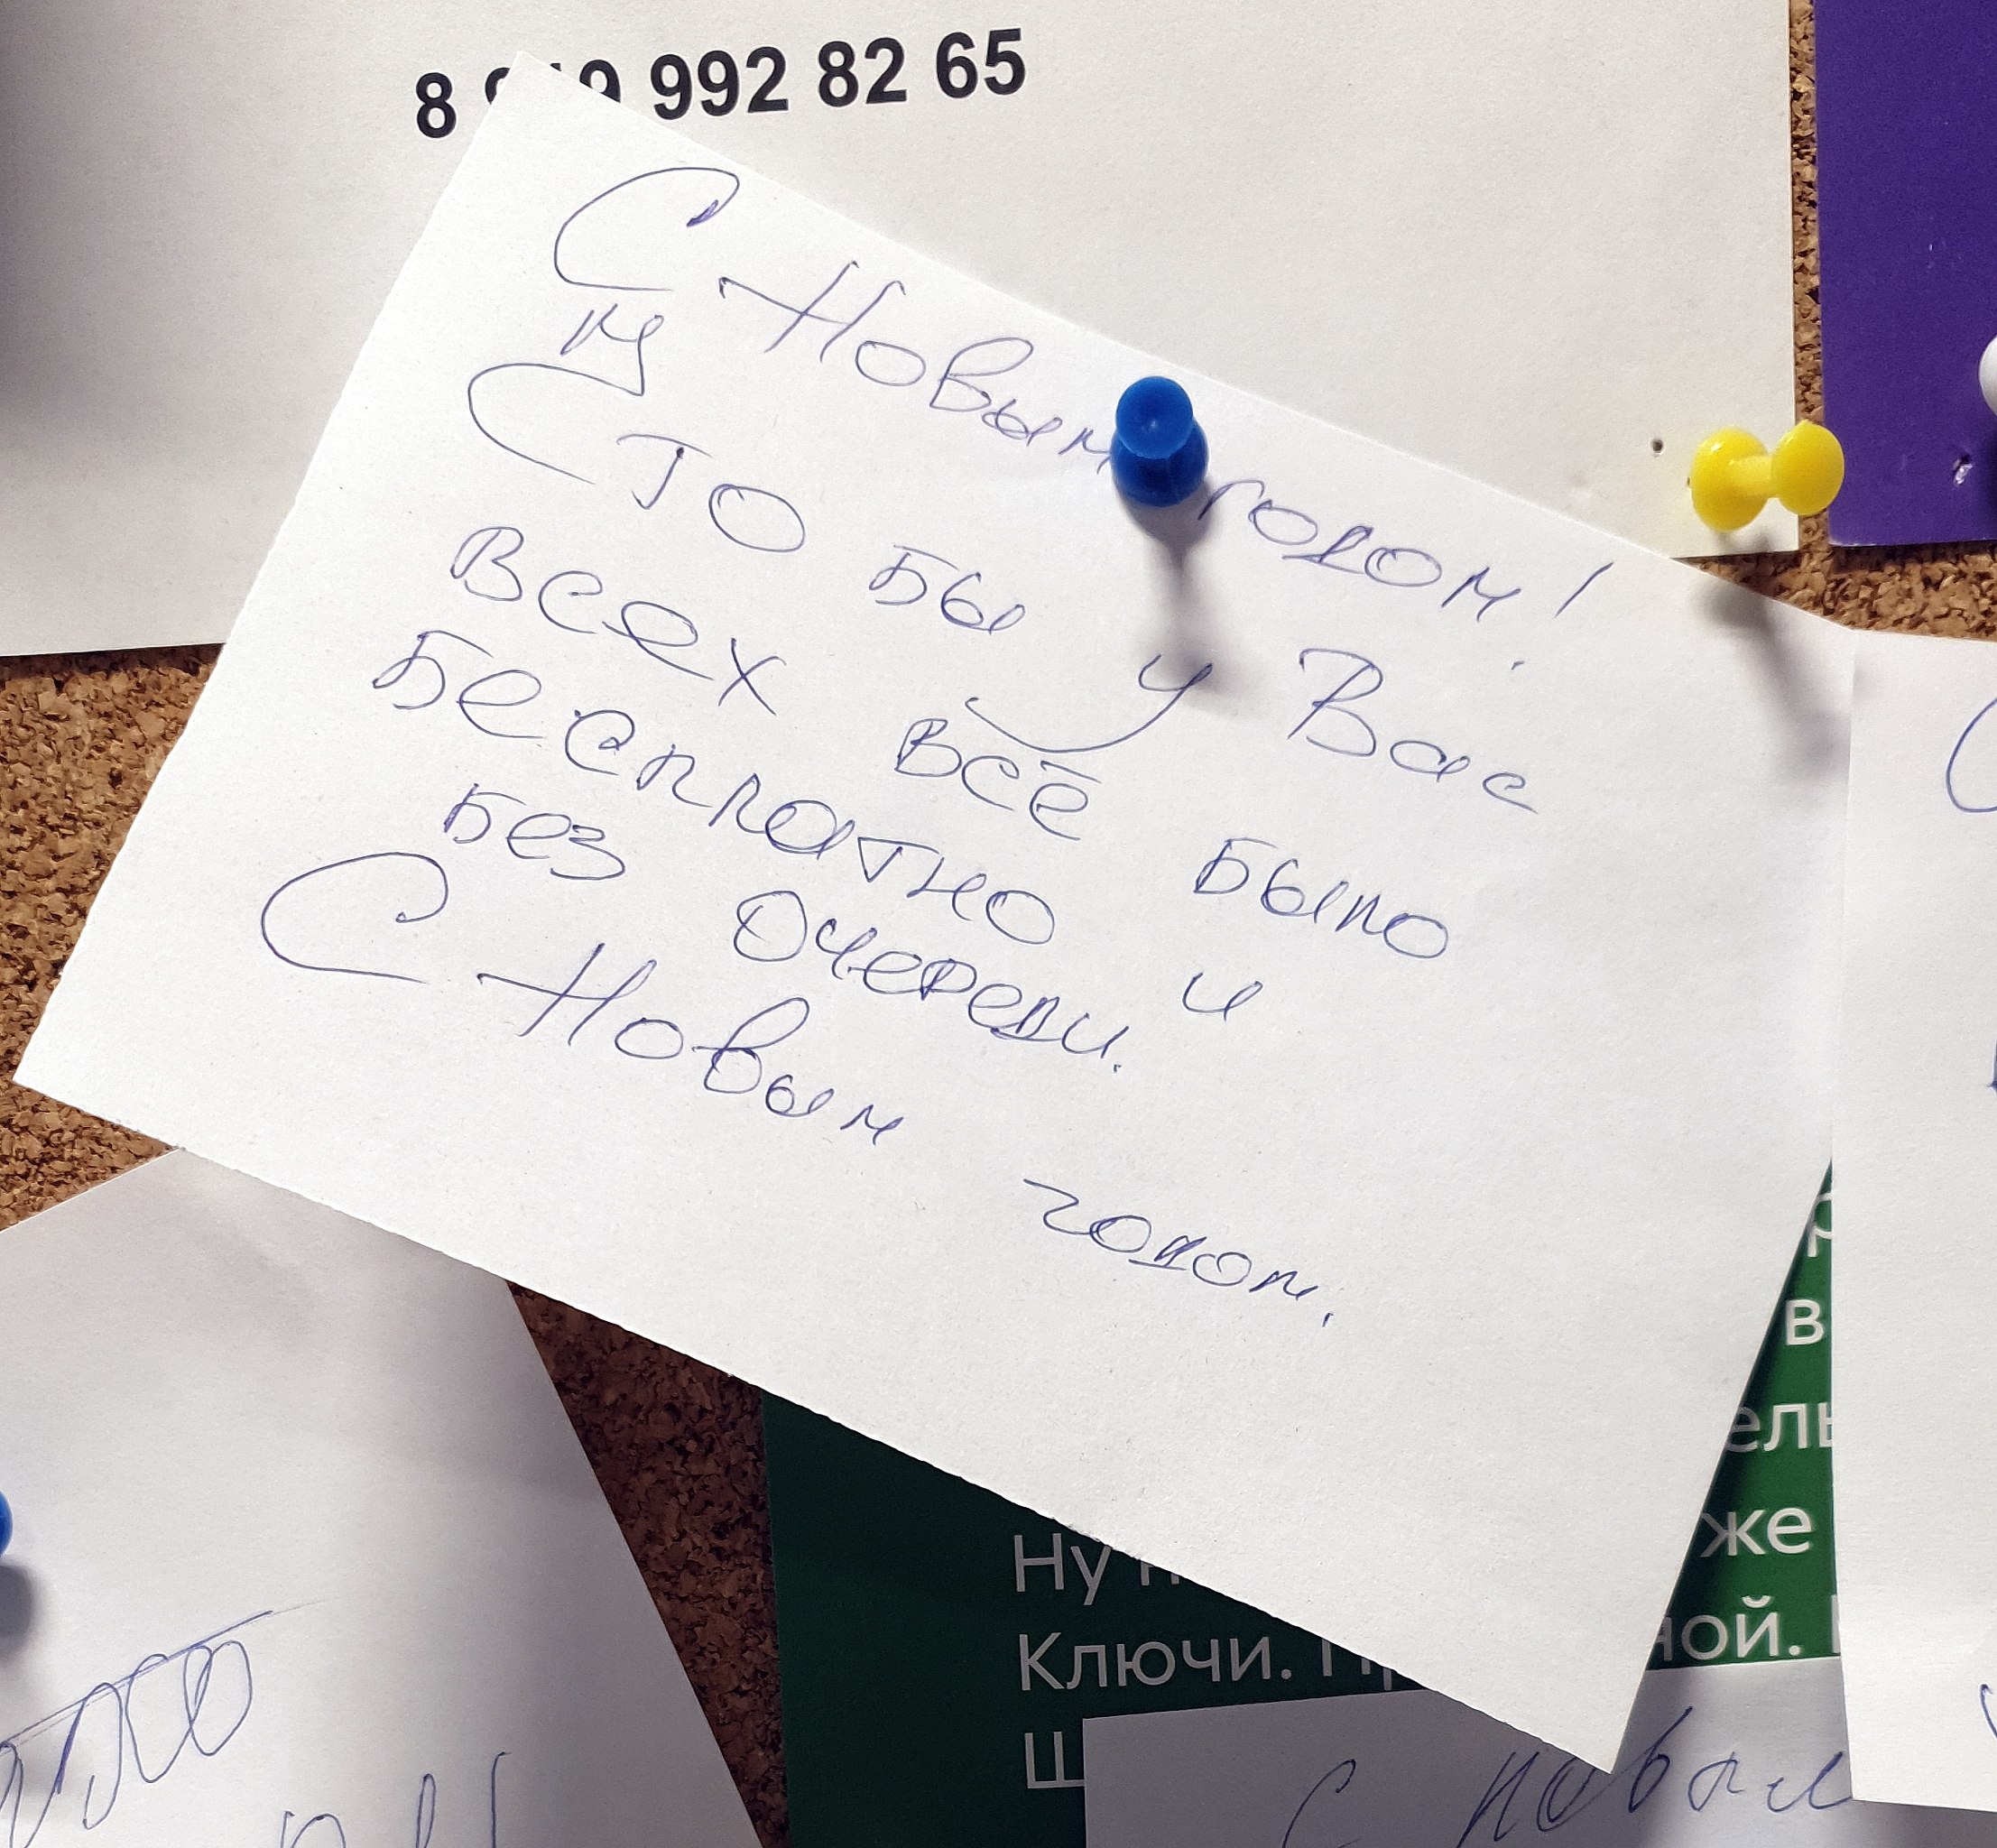 8 992 82 65
С Новым годом!
Сто бы у Вас
всех всё было
бесплатно и
без очереди.
С Новым годом.
в
же
ной.
Ну
Ключи.
С новым